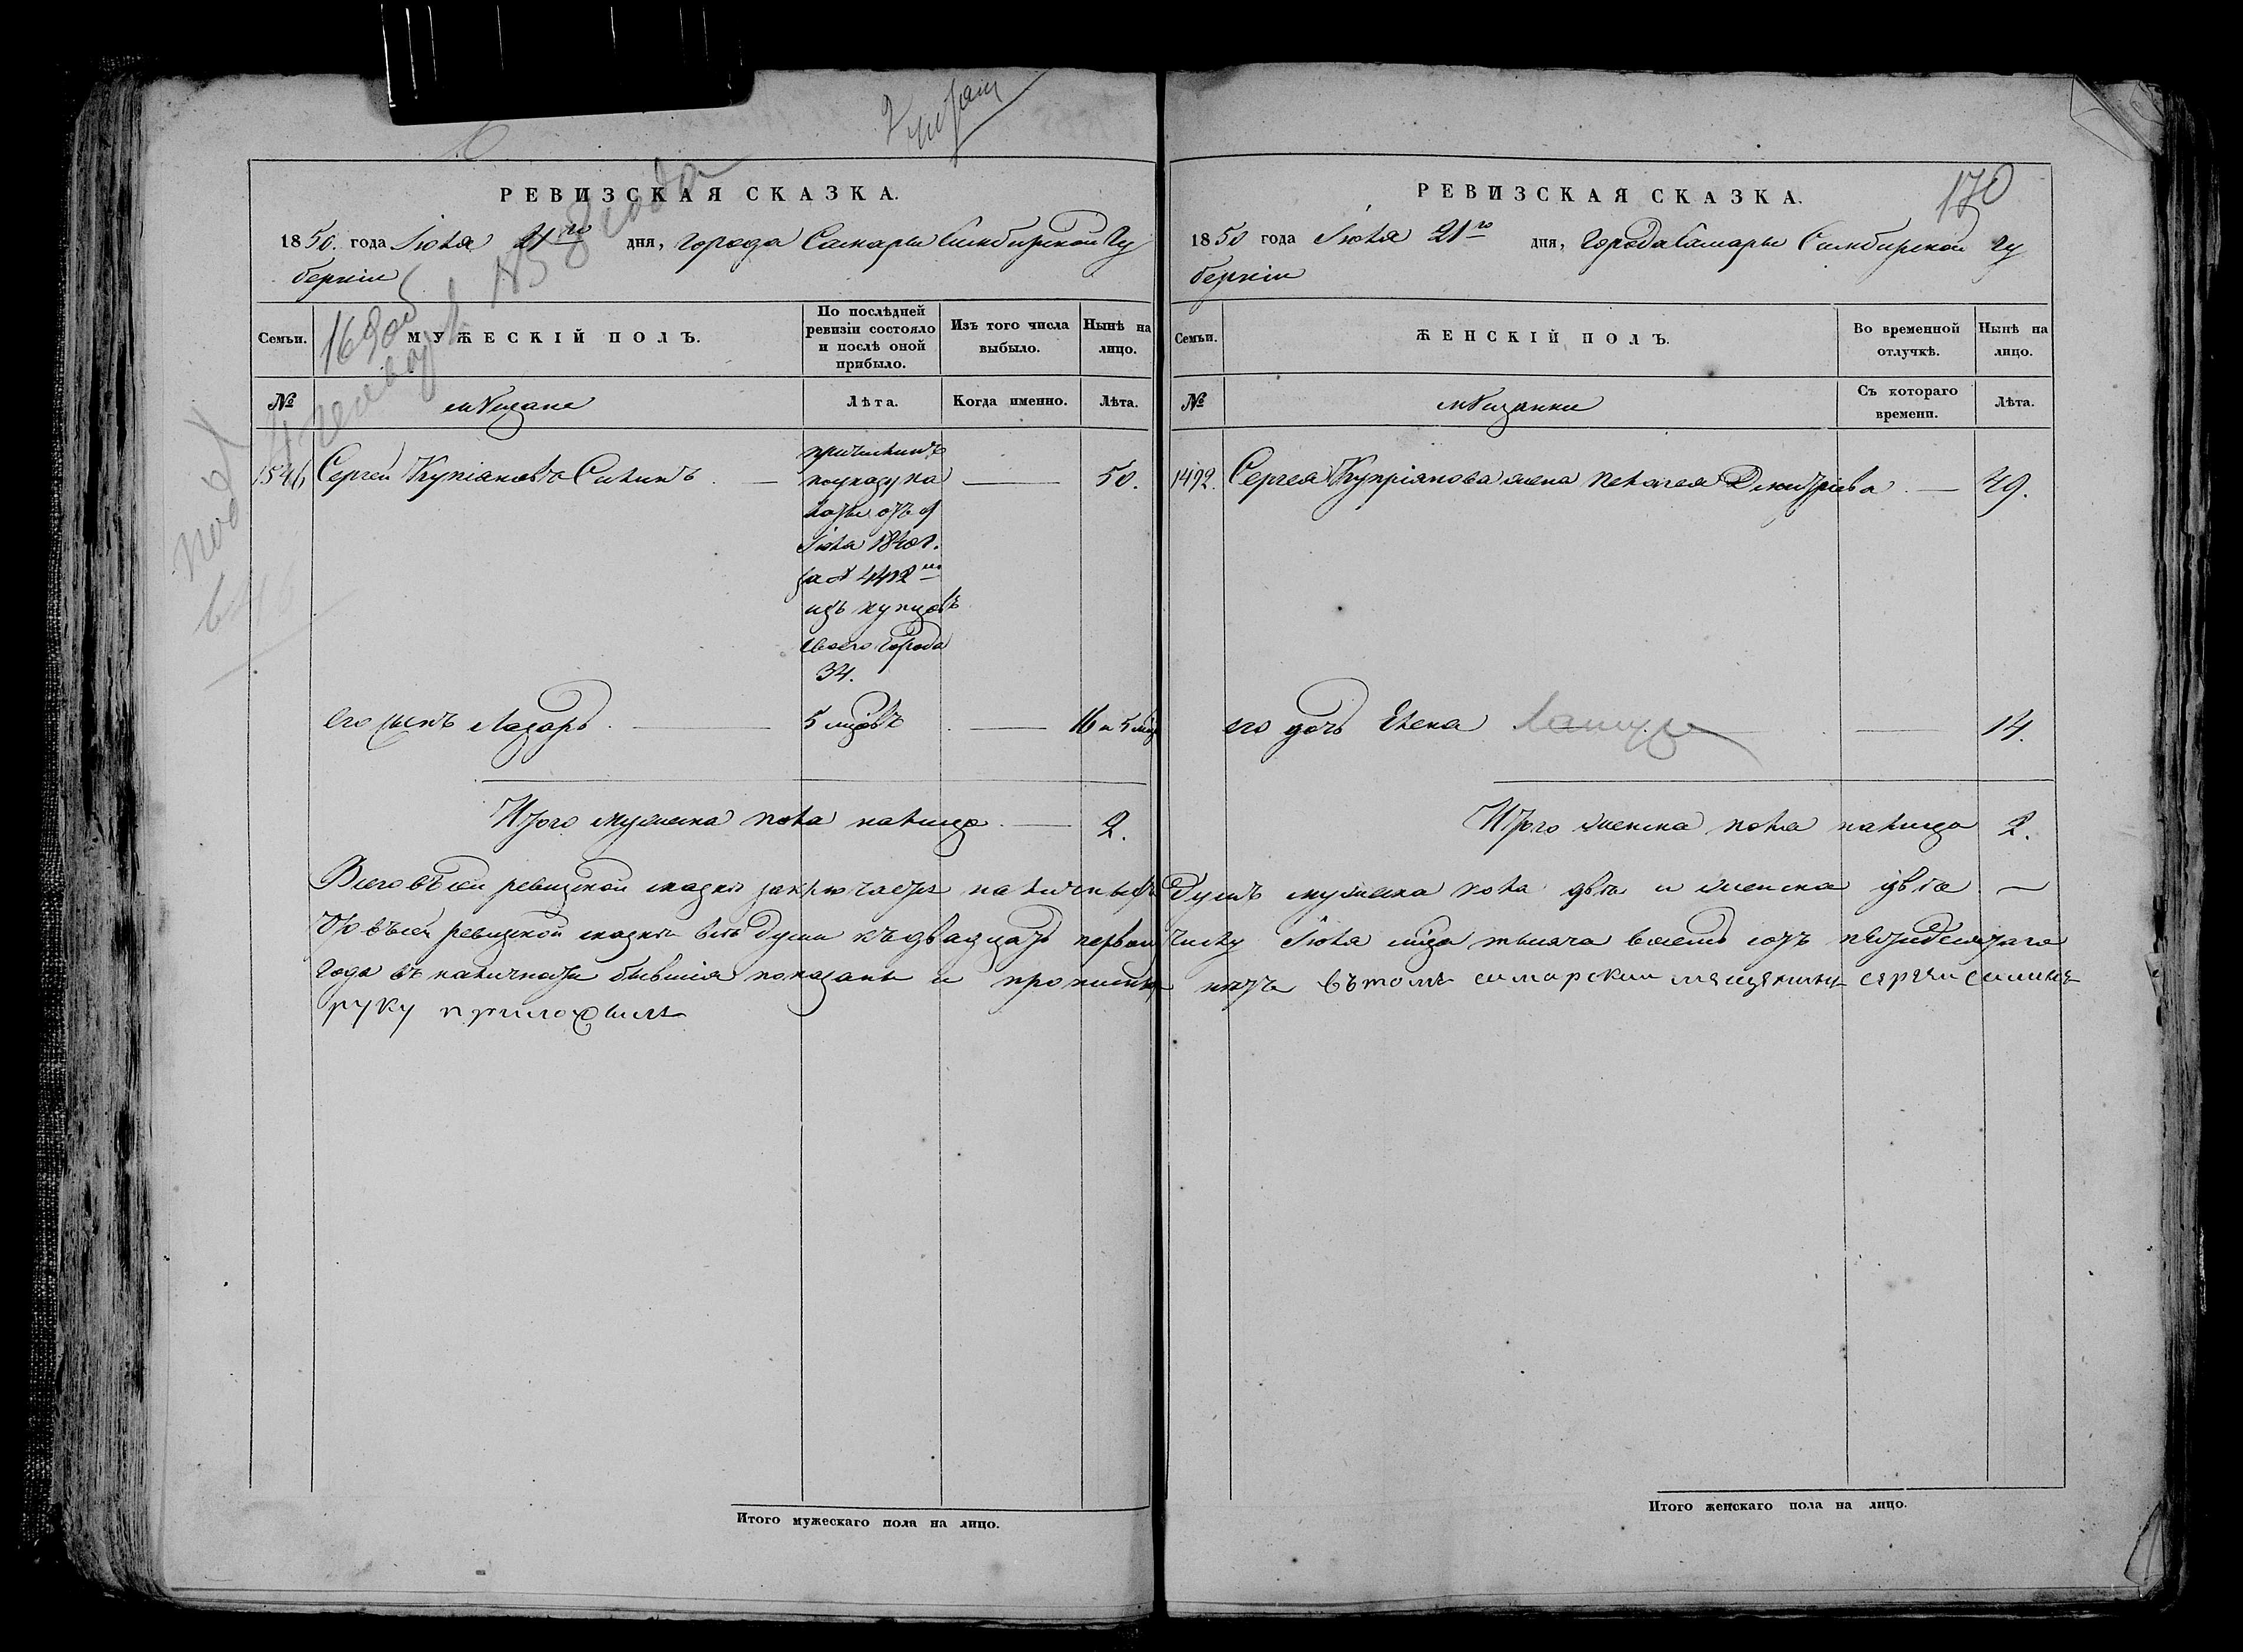 РЕВИЗСКАЯ СКАЗКА.
1850. года Іюля 21го дня, города Самары Симбирской Гу
берніи
Семьи.
МУЖЕСКІЙ ПОЛЪ.
По послѣдней ревизіи состояло и послѣ оной прибыло.
Изъ того числа выбыло.
Нынѣ на лицо.
№
мѣщане
Лѣта.
Когда именно.
Лѣта.
1546 Сергей Купріановъ Силинъ
причисленъ
по указу па
латы отъ 9
Іюля 1840 г.
за № 4492мъ
изъ купцовъ
своего города
34.
50.
его сынъ Лазарь 5 мцовъ 16 и 5 мцъ
Итого мужеска пола налицо 2.
Итого мужескаго пола на лицо.
РЕВИЗСКАЯ СКАЗКА.
170
1850 года Іюля 21го дня, города Самары Симбирской Гу
берніи
Семьи.
ЖЕНСКІЙ ПОЛЪ.
Во временной отлучкѣ.
Нынѣ на лицо.
№
мѣщанки
Съ котораго времени.
Лѣта.
1492. Сергея Купріянова жена Пелагея Дмитріева 49.
его дочь Елена 14.
Итого женска пола налицо 2.
Всего въ сей ревизской сказкѣ заключается наличныхъ душъ мужеска пола двѣ и женска двѣ
Что въ сей ревизской сказкѣ всѣ души къ двадцать первому числу Іюля мца тысяча восемь сотъ пятидесятаго
года въ наличности бывшія показаны и прописныхъ нѣтъ въ томъ самарский мещянинъ сяргеи силинъ
руку приложилъ
Итого женскаго пола на лицо.